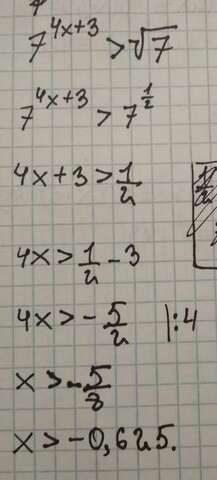 7^{4x+3} > √7
7^{4x+3} > 7^{1/2}
4x + 3 > 1/2
4x > 1/2 - 3
4x > - 5/2 |:4
x > - 5/8
x > -0,625.